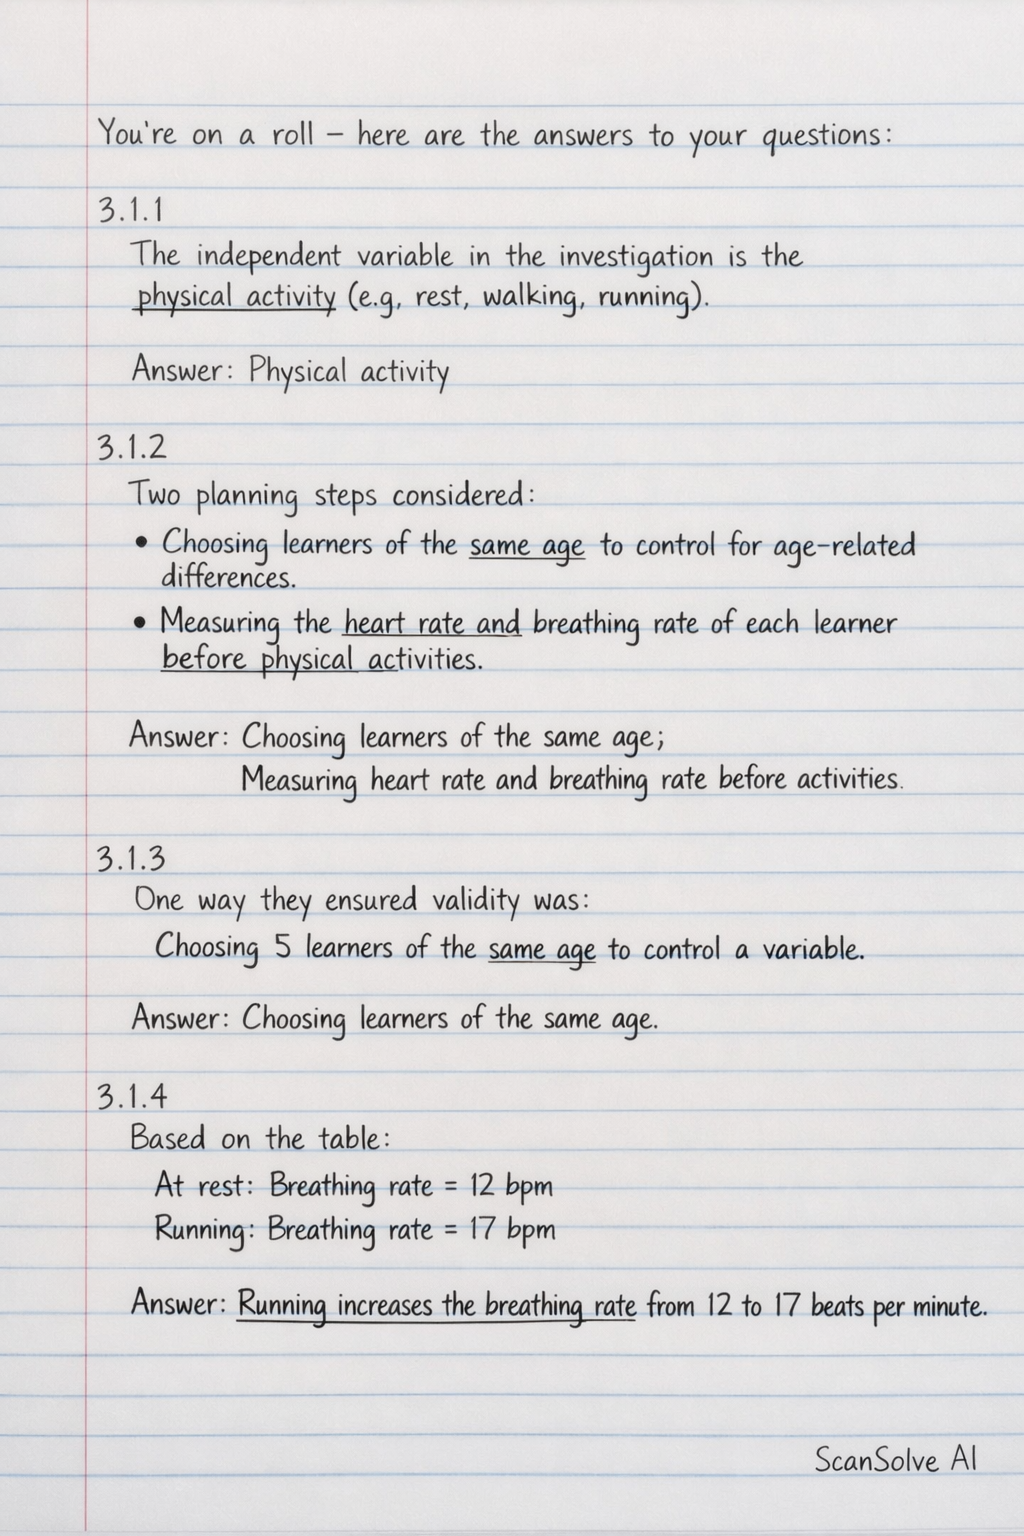 You're on a roll – here are the answers to your questions:
3.1.1
The independent variable in the investigation is the
physical activity (e.g, rest, walking, running).
Answer: Physical activity
3.1.2
Two planning steps considered:
• Choosing learners of the same age to control for age-related
differences.
• Measuring the heart rate and breathing rate of each learner
before physical activities.
Answer: Choosing learners of the same age;
Measuring heart rate and breathing rate before activities.
3.1.3
One way they ensured validity was:
Choosing 5 learners of the same age to control a variable.
Answer: Choosing learners of the same age.
3.1.4
Based on the table:
At rest: Breathing rate = 12 bpm
Running: Breathing rate = 17 bpm
Answer: Running increases the breathing rate from 12 to 17 beats per minute.
ScanSolve AI